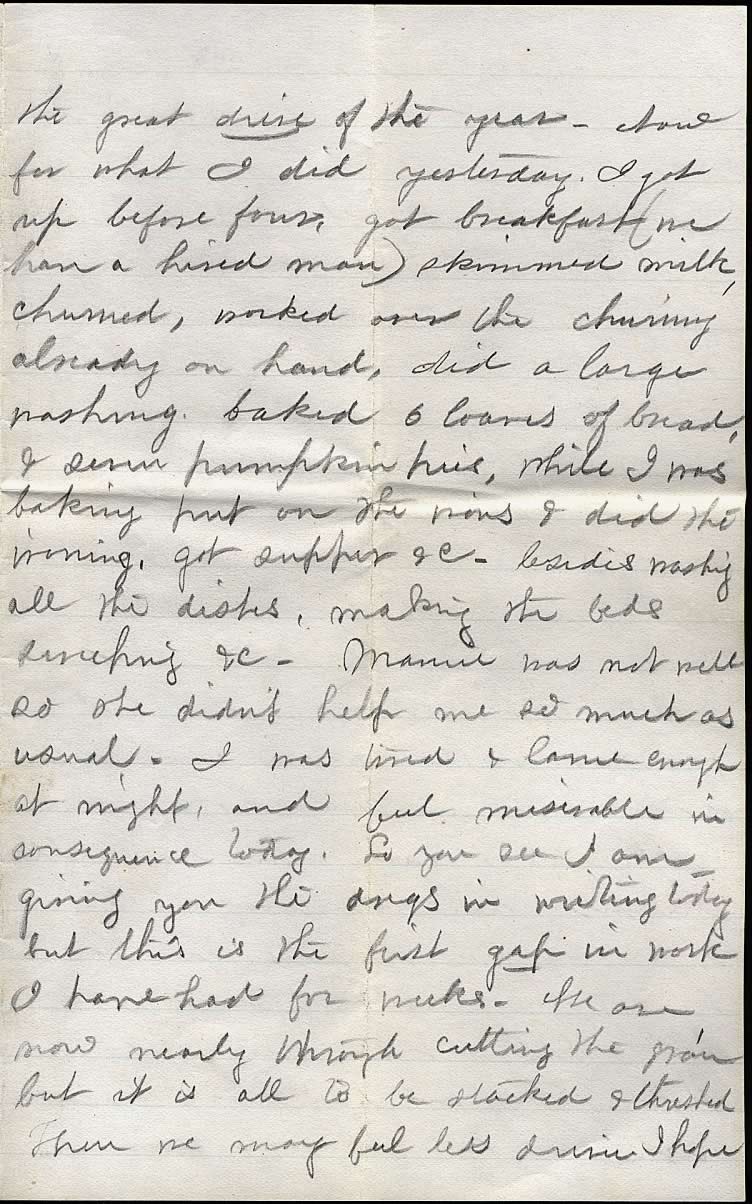 the great drive of the year - Now
for what I did yesterday. I got
up before four, got breakfast (we
have a hired man) skimmed milk,
churned, worked over the churning
already on hand, did a large
washing. baked 6 loaves of bread,
& seven pumpkin pies, while I was
baking put on the irons & did the
ironing. got supper &c - besides washing
all the dishes, making the beds
sweeping &c - Mamie was not well
so she didn't help me so much as
usual - I was tired & lame enough
at night, and feel miserable in
consequence today. So you see I am
giving you the dregs in writing today
but this is the first gap in work
I have had for weeks - We are
now nearly through cutting the grain
but it is all to be stacked & threshed
Then we may feel less driven I hope